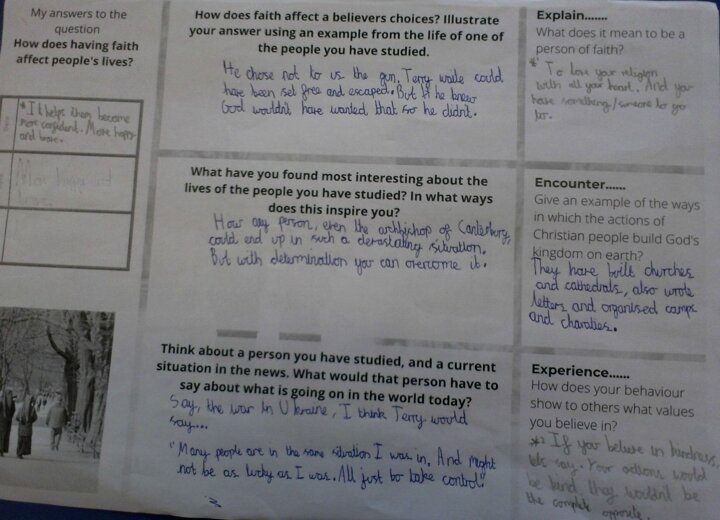 My answers to the
question
How does having faith
affect people's lives?
*It helps them become
more confident. More happy
and brave.
How does faith affect a believers choices? Illustrate
your answer using an example from the life of one of
the people you have studied.
He chose not to us the gun. Terry waite could
have been set free and escaped. But if he knew
God wouldn't have wanted that so he didn't.
What have you found most interesting about the
lives of the people you have studied? In what ways
does this inspire you?
How any person, even the archbishop of Canterbury,
could end up in such a devastating situation.
But with determination you can overcome it.
Think about a person you have studied, and a current
situation in the news. What would that person have to
say about what is going on in the world today?
Say, the war in Ukraine, I think Terry would
say....
"Many people are in the same situation I was in. And might
not be as lucky as I was. All just to take control."
Explain.......
What does it mean to be a
person of faith?
* To love your religion
with all your heart. And you
have something/someone to go
to.
Encounter......
Give an example of the ways
in which the actions of
Christian people build God's
kingdom on earth?
They have built churches
and cathedrals, also wrote
letters and organised camps
and charaties.
Experience......
How does your behaviour
show to others what values
you believe in?
* If you believe in kindness,
lets say. Your actions would
be kind they wouldn't be
the complete opposite.